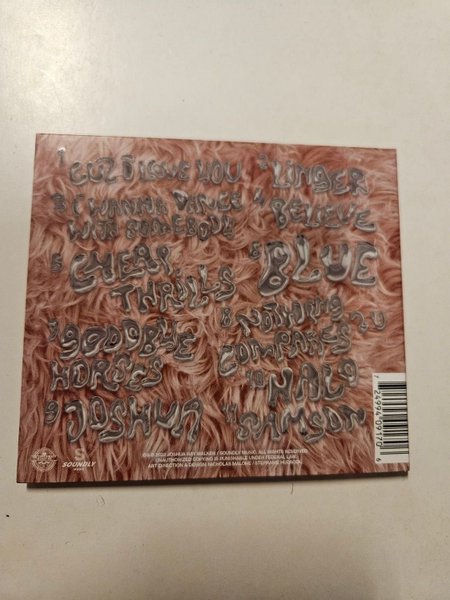 1 CUZ I LOVE YOU
2 LINGER
3 I WANNA DANCE
WITH SOMEBODY
4 BELIEVE
5 CHEAP
THRILLS
6 BLUE
7 GOODBYE
HORSES
8 NOTHING 2 U
COMPARES
9 JOSHUA
10 HALO
11 SAMSON
SOUNDLY
MUSIC
JOSHUA RAY WALKER / SOUNDLY MUSIC. ALL RIGHTS RESERVED
UNAUTHORIZED COPYING IS PUNISHABLE UNDER FEDERAL LAW.
ART DIRECTION & DESIGN: NICHOLAS MALONE / STEPHANIE